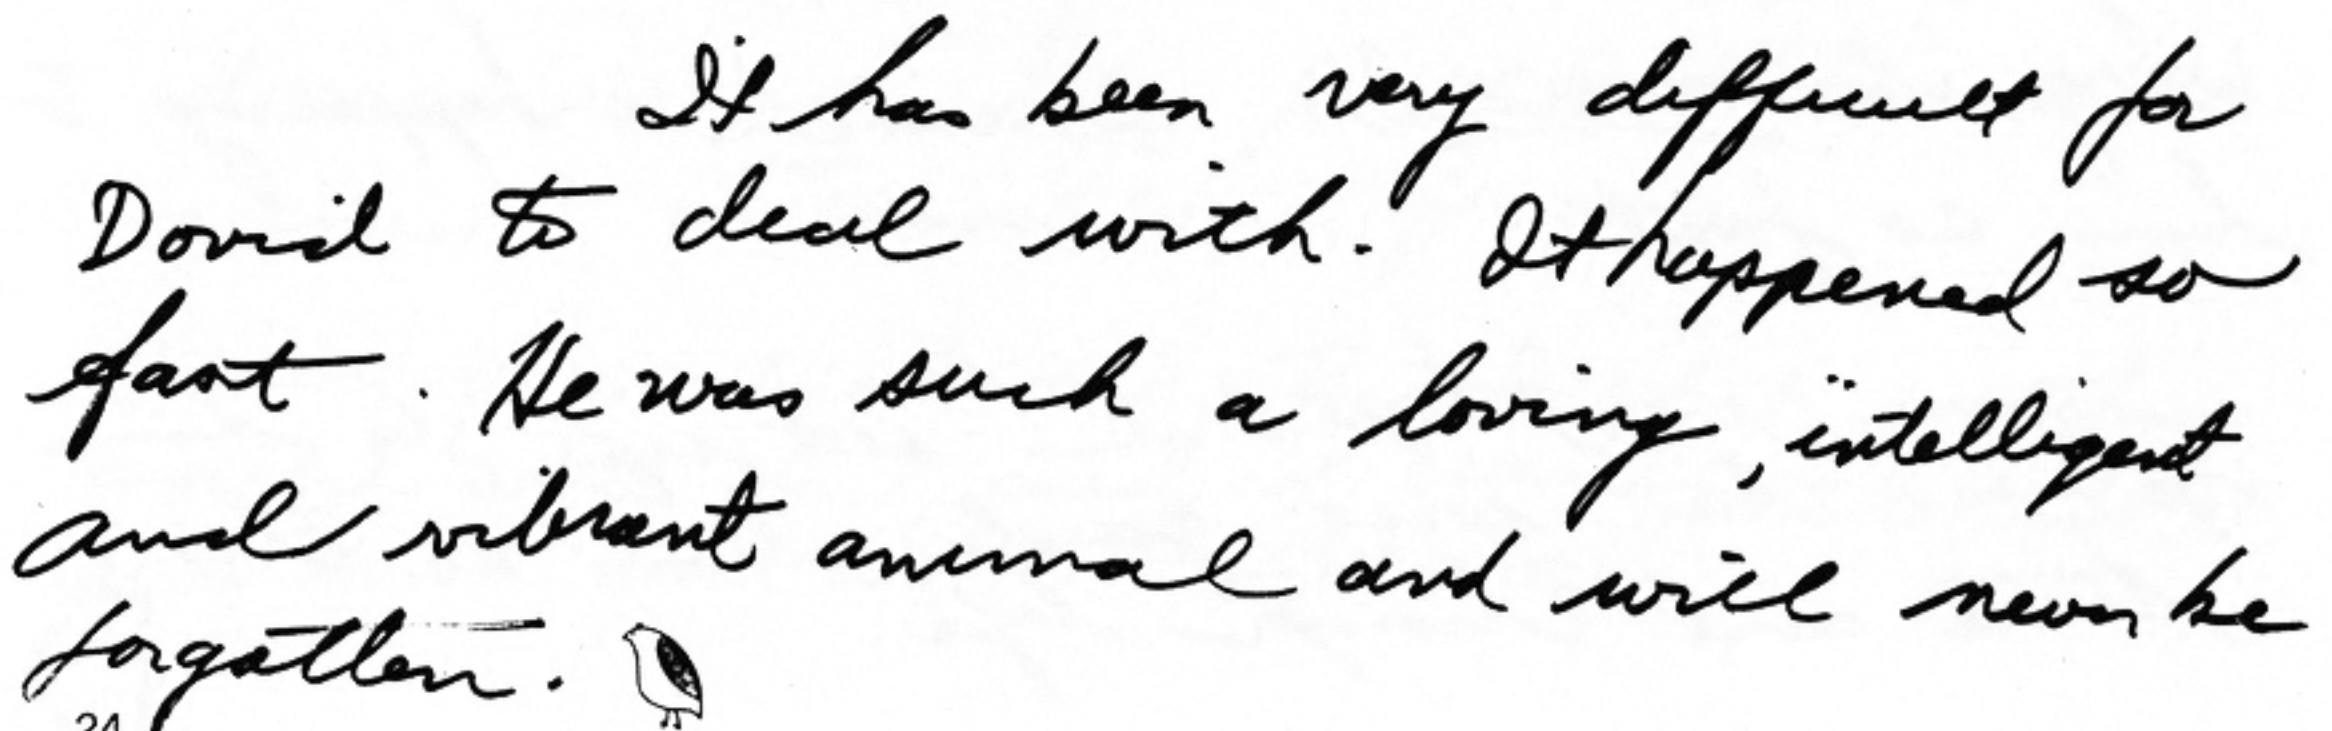 It has been very difficult for
David to deal with. It happened so
fast. He was such a loving, intelligent
and vibrant animal and will never be
forgotten.
24